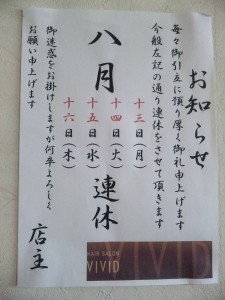 お知らせ
毎々御引立に預り厚く御礼申上げます
今般左記の通り連休をさせて頂きます
八月 連休
十三日(月)
十四日(火)
十五日(水)
十六日(木)
御迷惑をお掛けしますが何卒よろしく
お願い申上げます
店主
HAIR SALON
VIVID
VIVID